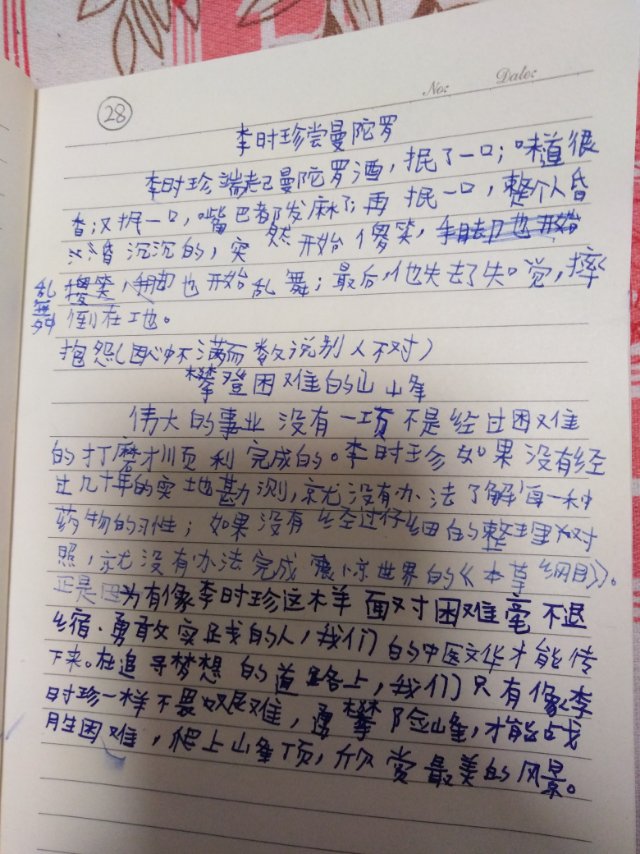 No:
Date:
28
李时珍尝曼陀罗
李时珍端起曼陀罗酒,抿了一口;味道很
香;又抿一口,嘴巴都发麻了;再抿一口,整个人昏
昏沉沉的,突然开始傻笑,手脚也开始
傻笑,手脚也开始乱舞;最后,他失去了知觉,摔
乱舞
倒在地。
抱怨(因心中不满而数说别人不对)
攀登困难的山峰
伟大的事业没有一项不是经过困难
的打磨才顺利完成的。李时珍如果没有经
过几十年的实地勘测,就没有办法了解每一种
药物的习性;如果没有经过仔细的整理对
照,就没有办法完成震惊世界的《本草纲目》。
正是因为有像李时珍这样面对困难毫不退
缩、勇敢文实战的人,我们的中医文华才能传
下来。在追寻梦想的道路上,我们只有像李
时珍一样不畏艰难,勇攀险峰,才能战
胜困难,爬上山峰顶,欣赏最美的风景。